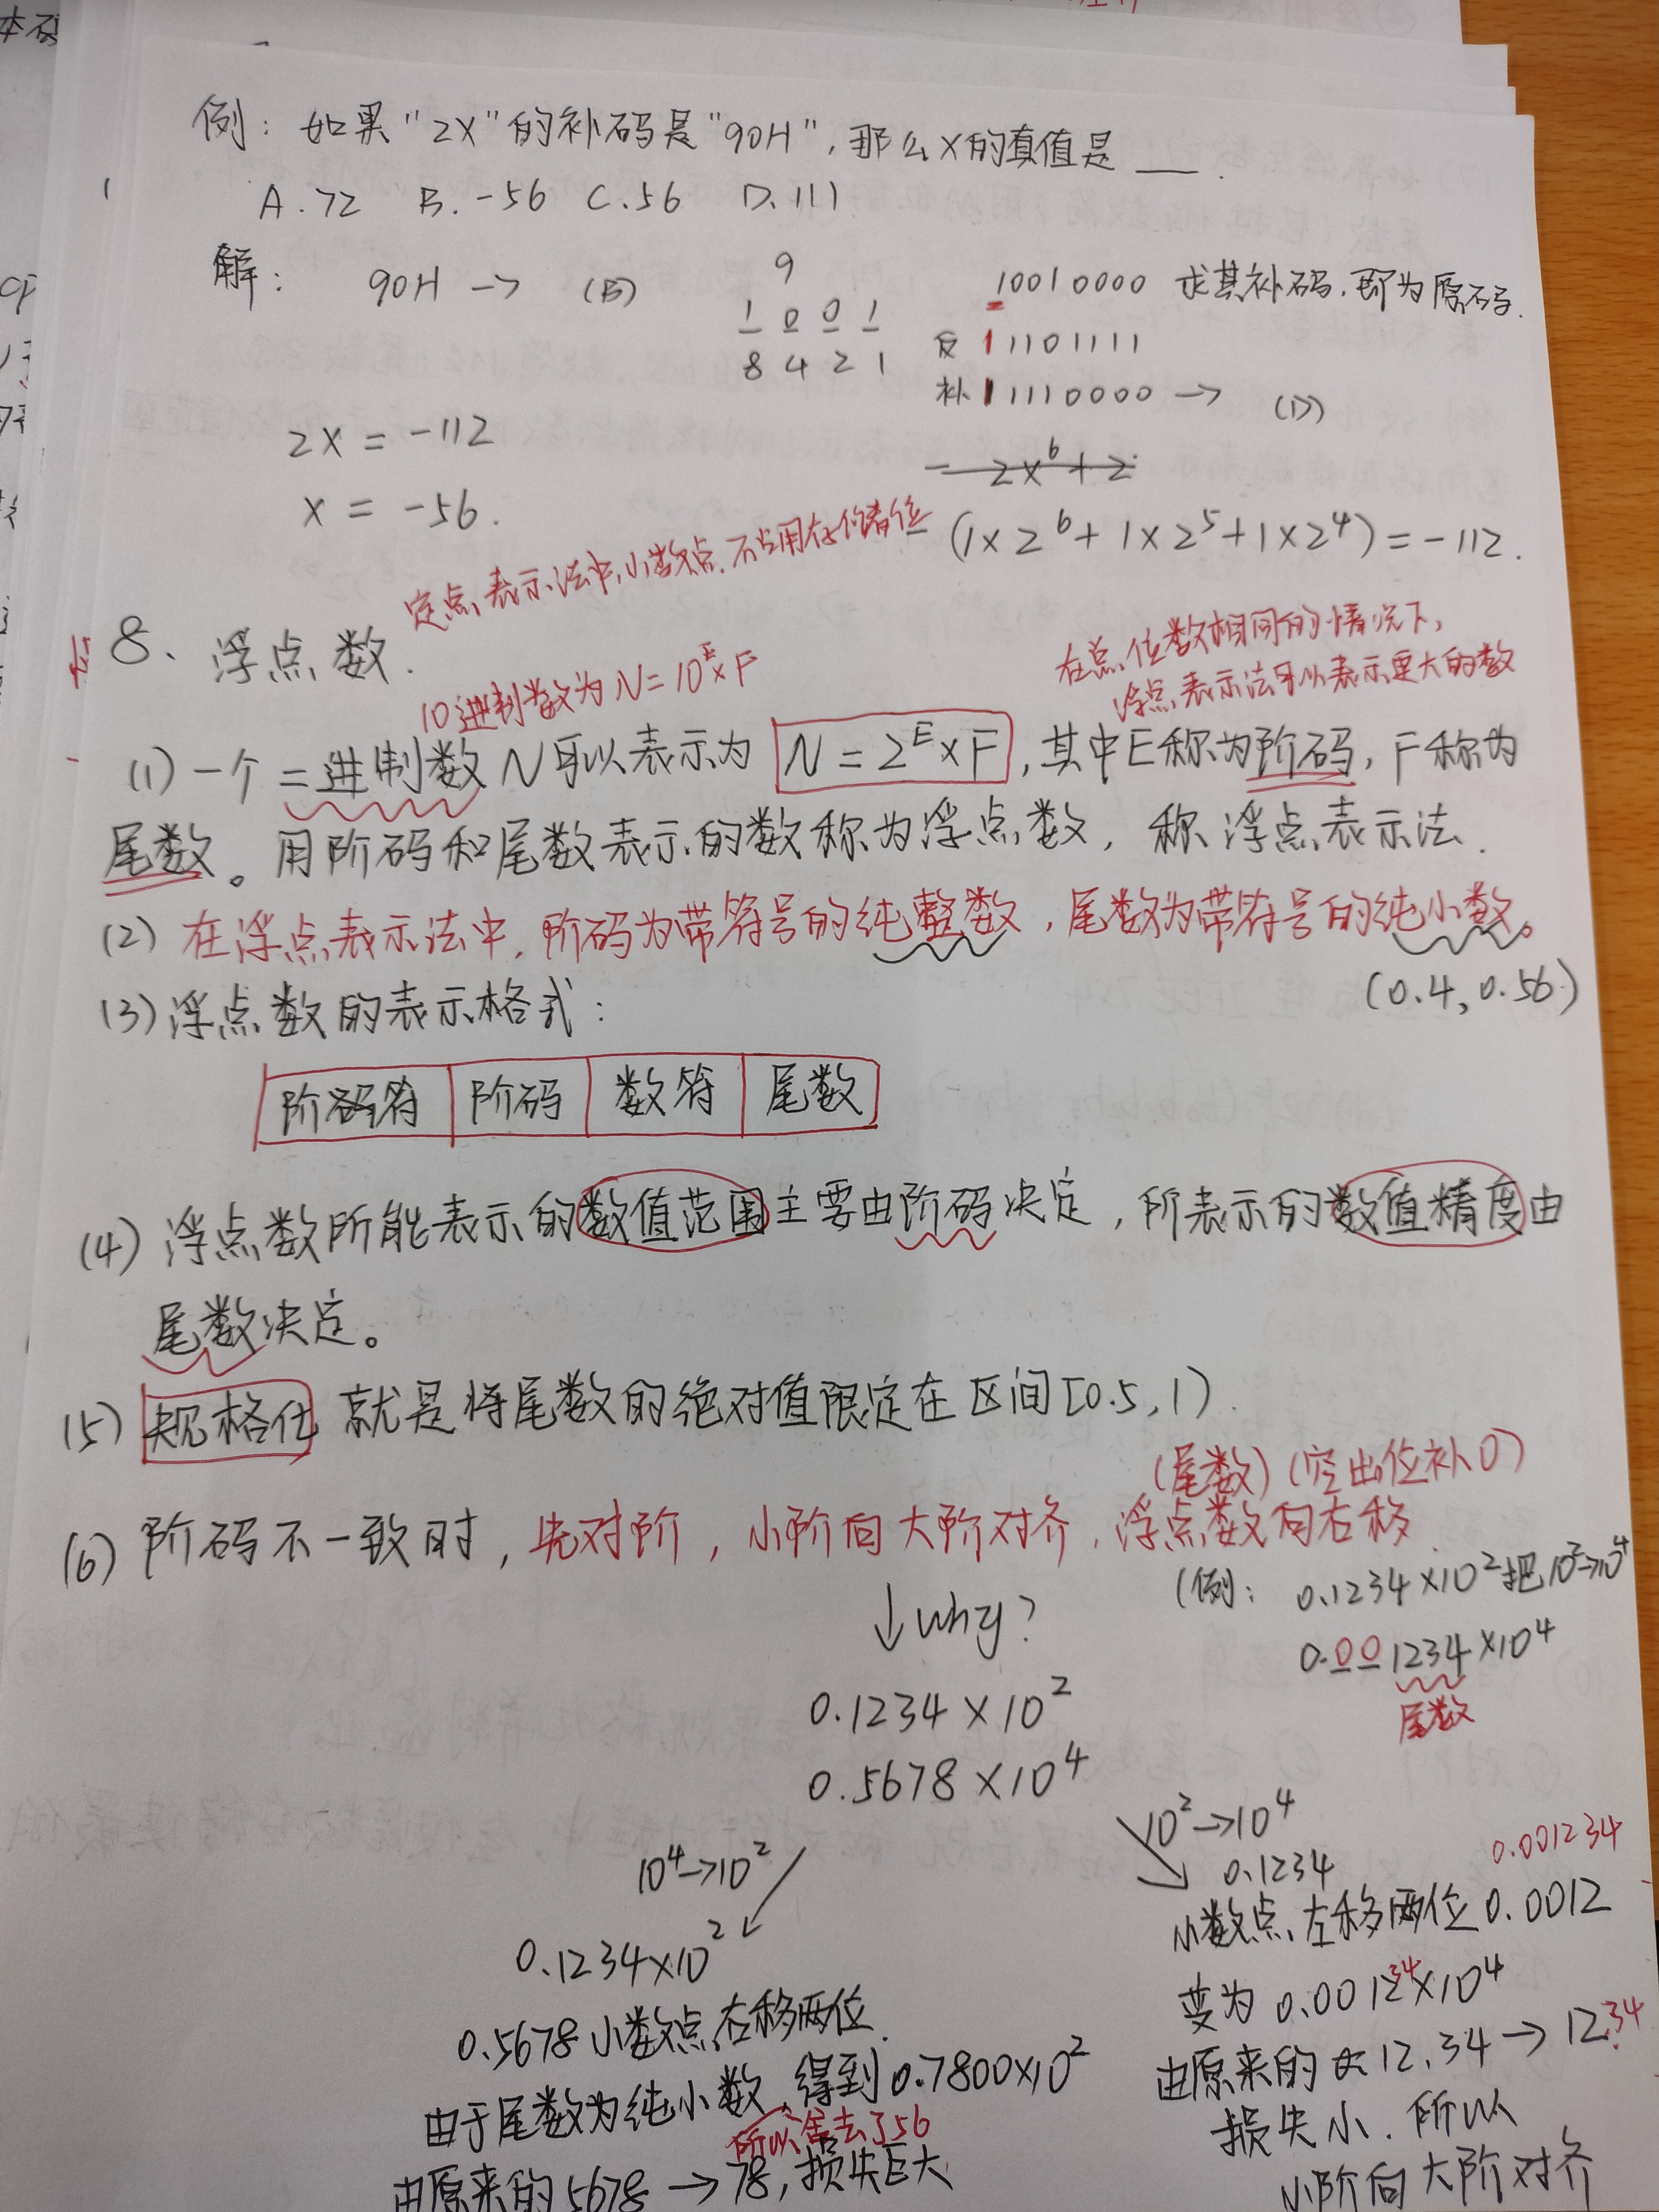 例：如果"2X"的补码是"90H"，那么X的真值是 ___ .
A.72 B.-56 C.56 D.111
解：90H → (B)
9
1 0 0 1
8 4 2 1
10010000 求其补码，即为原码.
反 11101111
补 11110000 → (D)
- 2x⁶+2
2x = -112
x = -56.
- (1×2⁶+1×2⁵+1×2⁴)=-112.
定点表示法中，小数点不占用存储位
8、浮点数.
10进制数为N=10ᴱ×F
在总位数相同的情况下，
浮点表示法可以表示更大的数
(1) 一个二进制数N可以表示为 N=2ᴱ×F，其中E称为阶码，F称为
尾数。用阶码和尾数表示的数称为浮点数，称浮点表示法.
(2) 在浮点表示法中，阶码为带符号的纯整数，尾数为带符号的纯小数。
(0.4, 0.56)
(3) 浮点数的表示格式：
阶码符 阶码 数符 尾数
(4) 浮点数所能表示的数值范围主要由阶码决定，所表示的数值精度由
尾数决定。
(5) 规格化 就是将尾数的绝对值限定在区间[0.5,1).
(尾数)(空出位补0)
(6) 阶码不一致时，先对阶，小阶向大阶对齐，浮点数向右移.
(例：0.1234×10²把10²→10⁴
0.001234×10⁴
尾数
↓why?
0.1234×10²
0.5678×10⁴
10⁴→10²
0.1234×10²
0.5678小数点右移两位.
由于尾数为纯小数，得到0.7800×10²
所以舍去了56
由原来的5678→78,损失巨大
10²→10⁴
0.1234
0.001234
小数点左移两位0.0012
变为0.001234×10⁴
由原来的12.34→12.34
损失小.所以
小阶向大阶对齐